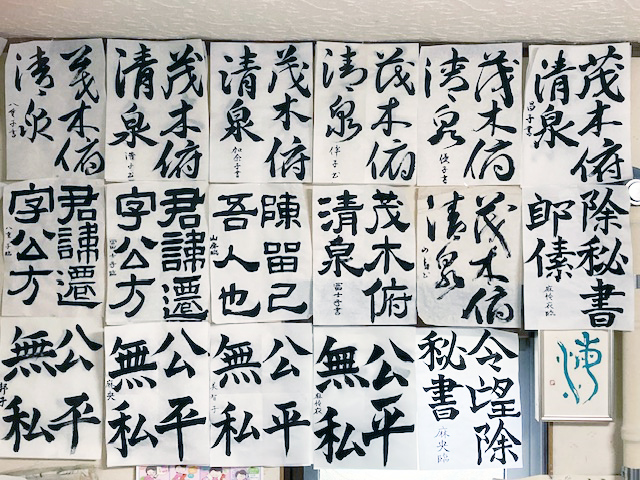 茂木俯
清泉
八重子書
茂木俯
清泉
茂木俯
清泉
加奈子書
茂木俯
清泉
茂木俯
清泉
優子書
茂木俯
清泉
昌子書
君諱遷
字公方
君諱遷
字公方
陳留己
吾人也
茂木俯
清泉
富士子書
茂木俯
清泉
除秘書
郎傃
公平
無私
邦子
公平
無私
麻央
公平
無私
美智子
公平
無私
令望除
秘書
麻央臨